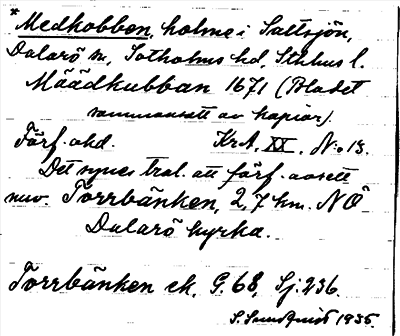 *Medkobben, holme i Saltsjön,
Dalarö sn, Sotholms hd, Sthlms l.
Määdkubban 1671 (Bladet
sammansatt av kopior).
Förf. okd. KrA. XX. N:o 13.
Det synes trol. att förf. avsett
nuv. Torrbänken, 2,7 km. NÖ
Dalarö kyrka.
Torrbänken ek. G. 68, Sj. 236.
S. Sundquist 1935.